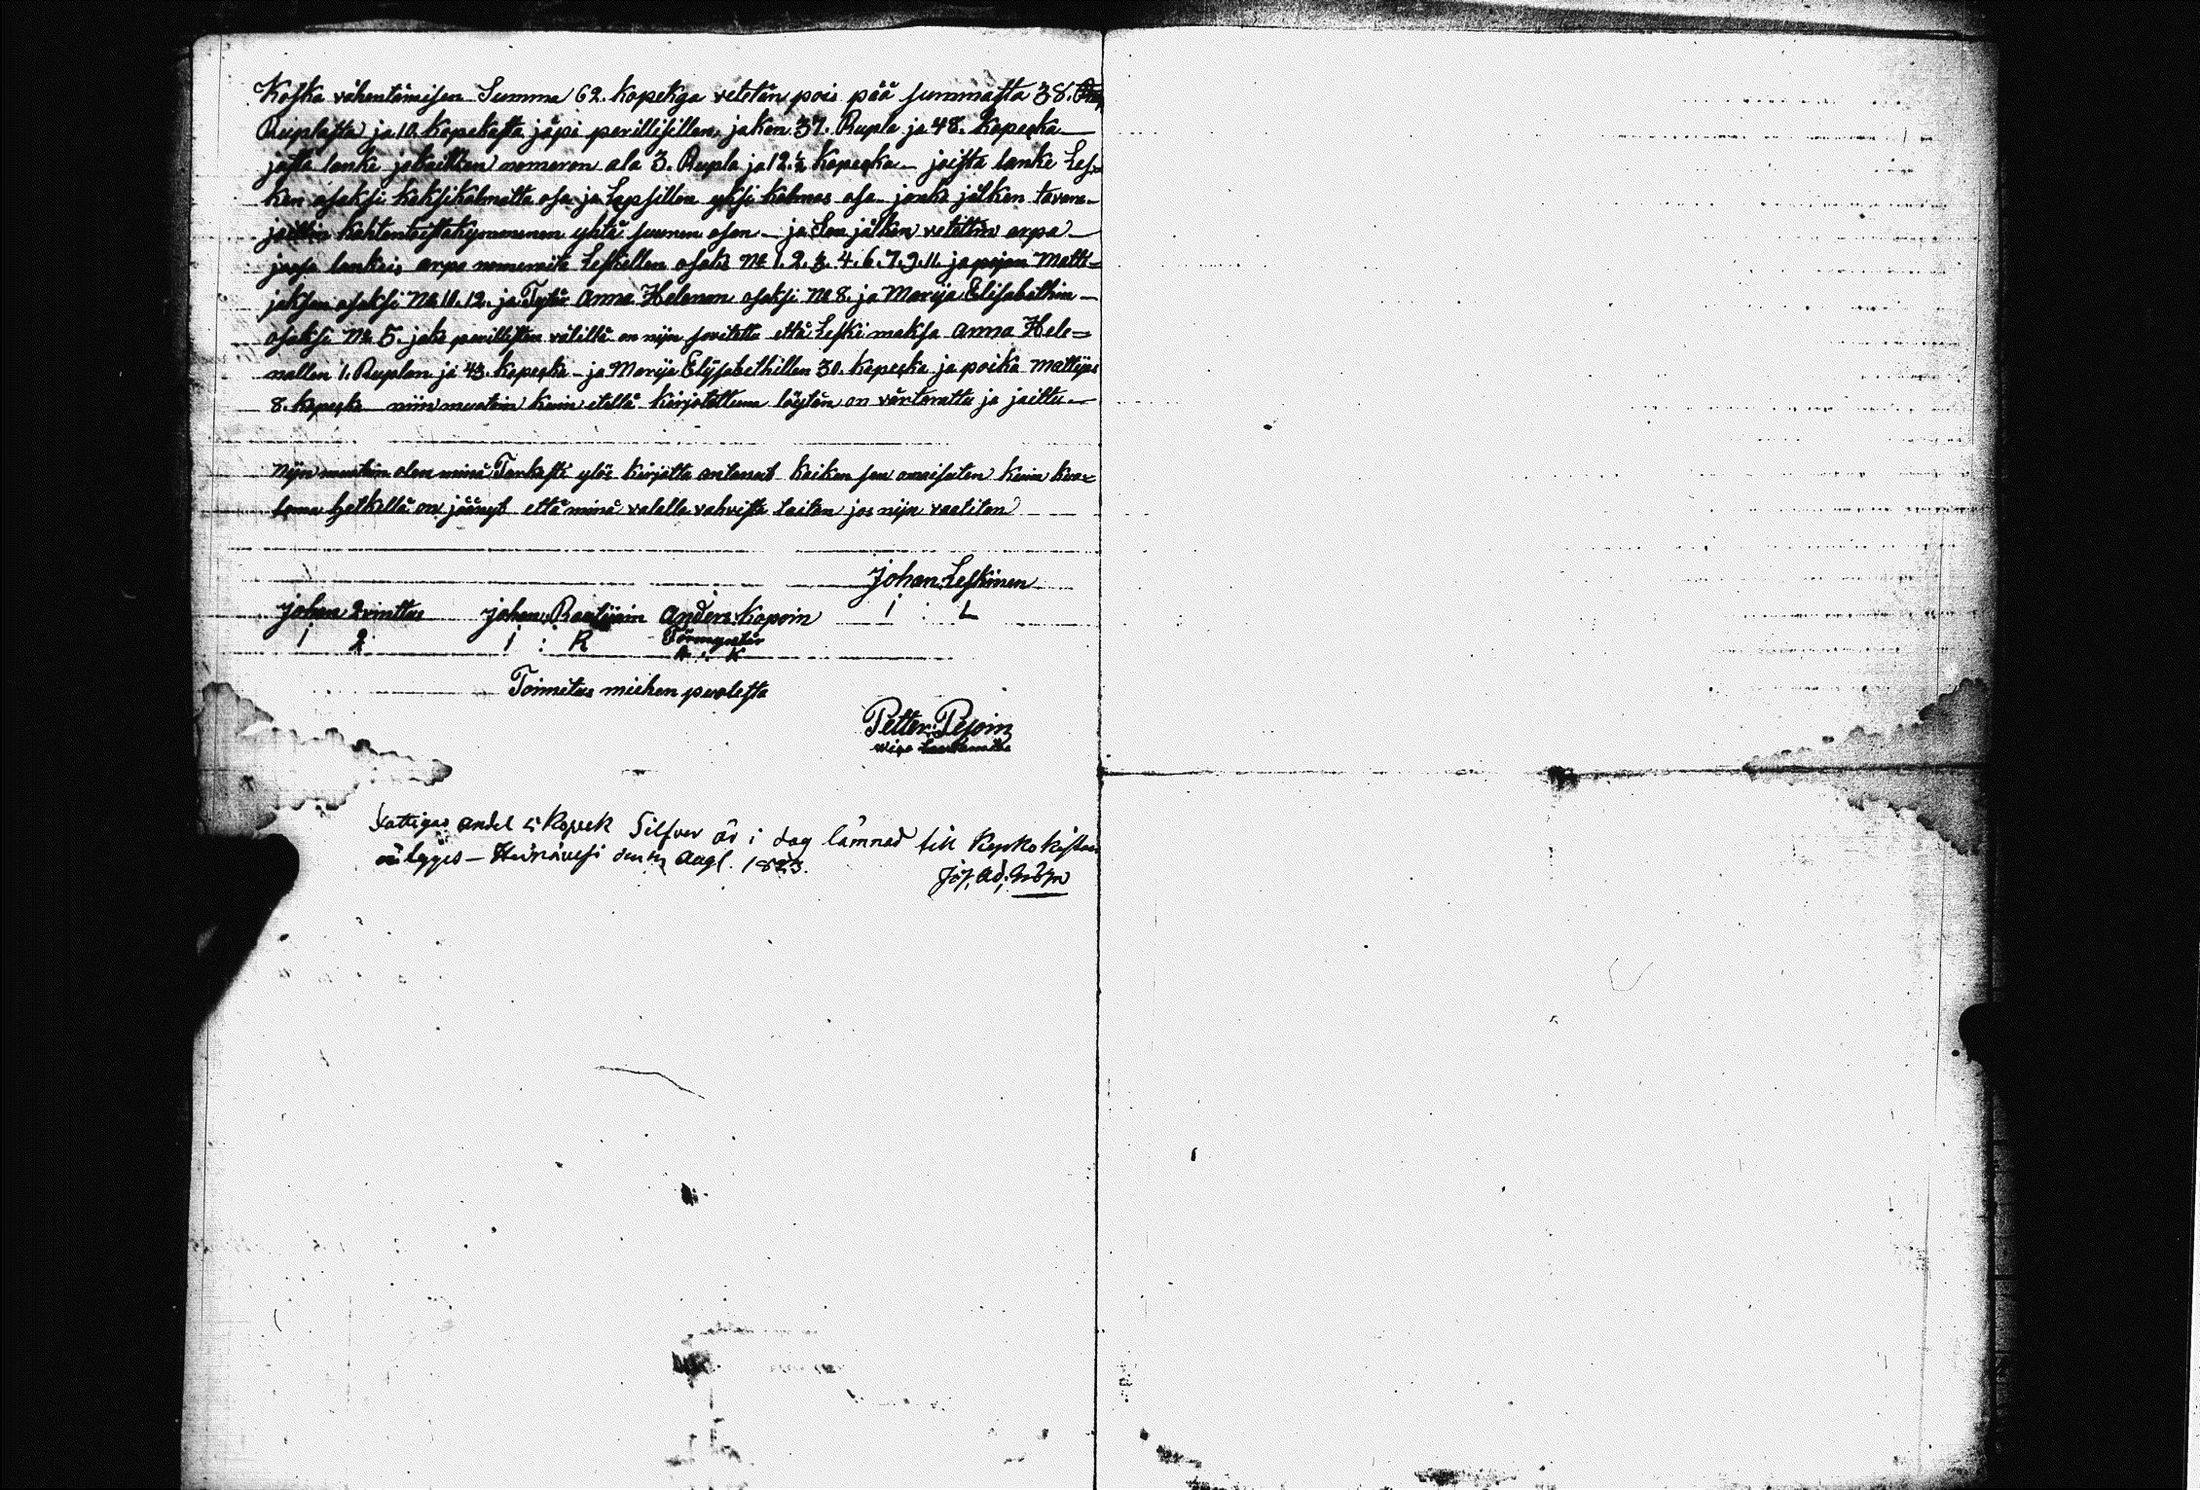 Koska vähentämisen Summa 62. kopekga vetetän pois pää summasta 38.
Ruplasta ja 10. kopekasta jäpi perillisillen jakon 37. Rupla ja 48. kopecka
josta lanke jokaitten nomeron ala 3. Rupla ja 12.½ kopecka – joista lanke Les=
ken osaksi kaksikolmatta osa ja Lapsillen yksi kolmas osa – jonka jälken tavara
jaettin kahtentoistakymmenen yhtä suuren osan – ja Sen jälken vetettin arpa
josa lankeis arpa nomeroita Leskellen osaks No 1. 2. 3. 4. 6. 7. 9. 11. ja pojan Matti=
jaksen osaksi No 10. 12. ja Tytär Anna Helenan osaksi No 8. ja Marija Elisabethin
osaksi No 5. jako perillisten välillä on nijn sovitettu että Leski maksa Anna Hele=
nallen 1. Ruplan ja 43. kopecka – ja Marija Elijsabethillen 30. kopecka ja poika Mattijas
8. kopecka niin muotoin kuin itellä kirjotettuna löytän on värteerattu ja jaettu
Nijn muotoin olen minä Tarkasti ylös kirjotta antanut kaiken sen omaisuten kuin kuo=
lema hetkellä on jäänyt että minä valalla vahvista taitan jos nijn vaatitan
Johan Leskinen
I : L
Johan Johan Raatijkain Anders Kapoin
I I : R A : K
Toimitus miehen puolesta
Petter Pesoin
wice Lautamies
Fattigas andel 5 kopek Silfver är i dag lämnad till Kyrko kistan
Heinävesi den Augs. 1823.